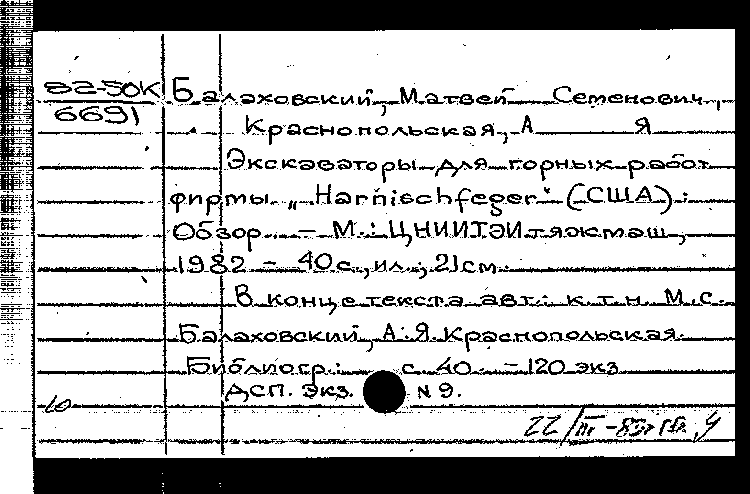 82-50К
6691
Балаховский, Матвей Семенович,
Краснопольская, А Я
Экскаваторы для горных работ
фирмы „Harnischfeger" (США):
Обзор. – М.: ЦНИИТЭИтяжмаш,
1982 – 40 с., ил.; 21 см.
В конце текста авт.: к.т.н. М.С.
Балаховский, А.Я. Краснопольская.
Библиогр.: с. 40. – 120 экз
ДСП. Экз. N 9.
10
22/III-83г